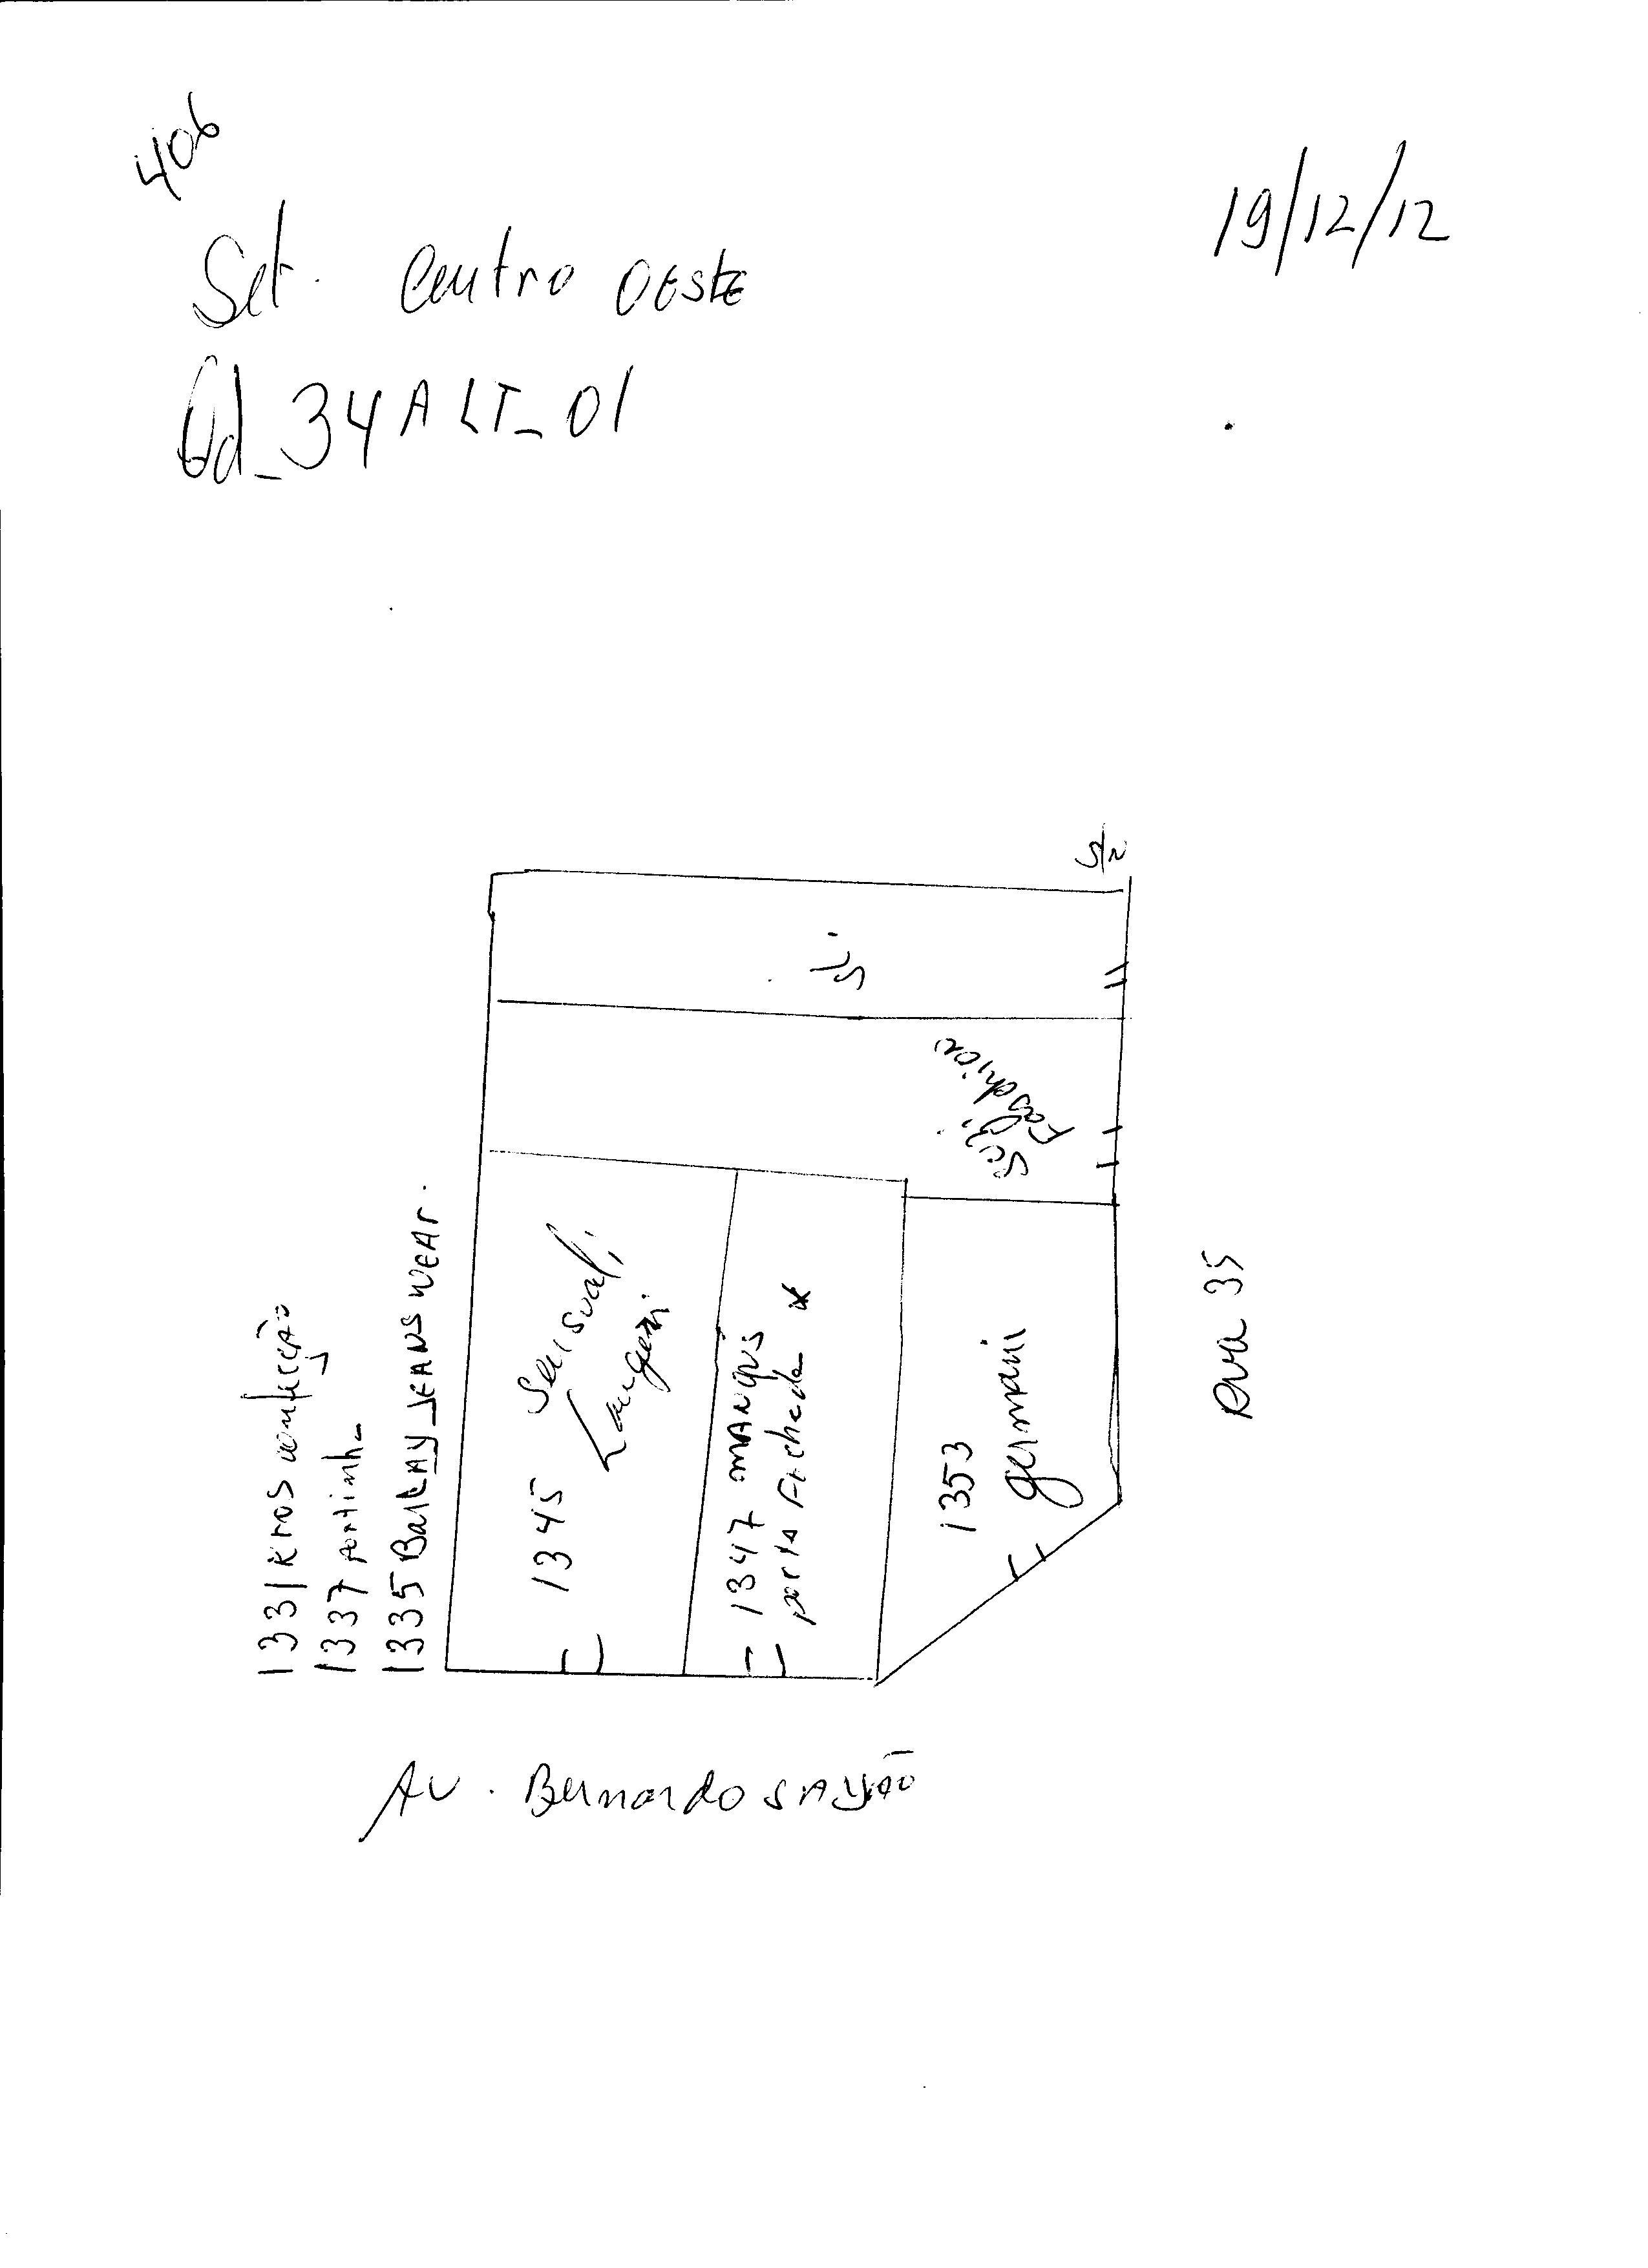 406
19/12/12
Set. Centro OESTE
Qd_34A LT_01
S/N
Faschion
1331 Kros confecção
1337 portinh_
1335 Barlay JEANS WEAr.
1345 Sensual
Langeri
1347 MANQUS
porta Fichada *
1353
germani
Rua 35
AV. Bernardo SAYÃO